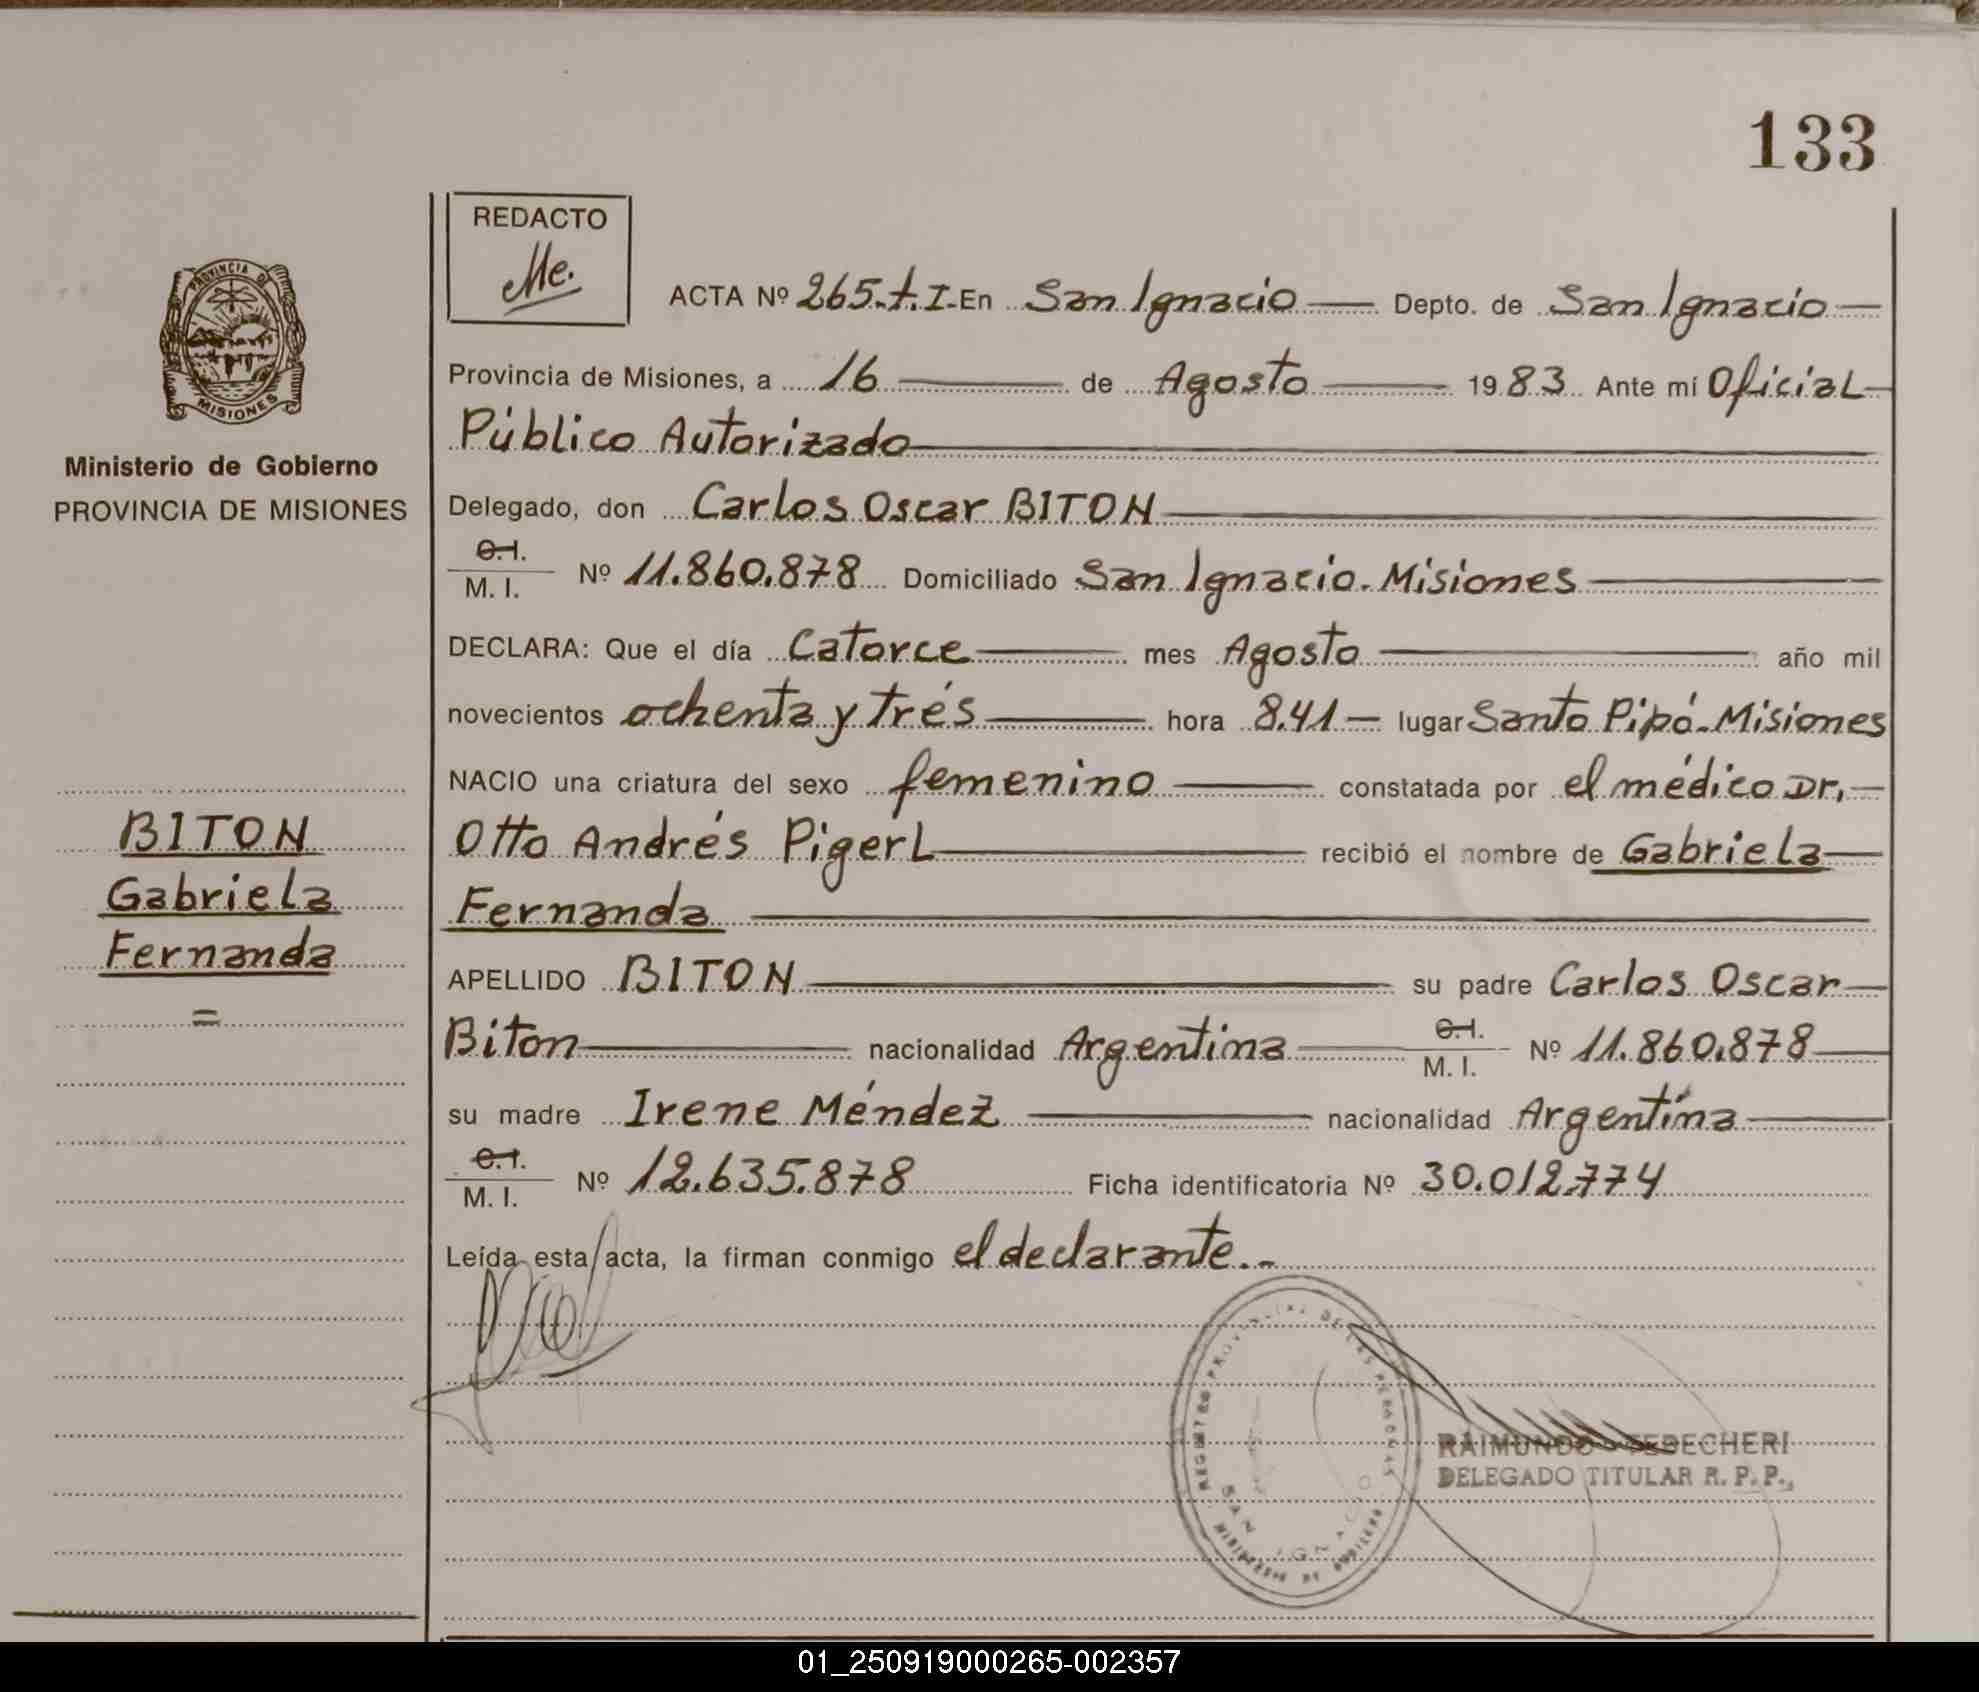 133
REDACTO
Me.
ACTA Nº 265-t.I- En San Ignacio Depto. de San Ignacio
Provincia de Misiones, a 16 de Agosto 1983 Ante mí Oficial
Público Autorizado
Delegado, don Carlos Oscar BITON
C.I.
M. I. Nº 11.860.878 Domiciliado San Ignacio - Misiones
DECLARA: Que el día Catorce mes Agosto año mil
novecientos ochenta y trés hora 8.41 lugar Santo Pipó - Misiones
NACIO una criatura del sexo femenino constatada por el médico Dr.
Otto Andrés Pigerl recibió el nombre de Gabriela
Fernanda
APELLIDO BITON su padre Carlos Oscar
Biton nacionalidad Argentina C.I.
M. I. Nº 11.860.878
su madre Irene Méndez nacionalidad Argentina
C.I.
M. I. Nº 12.635.878 Ficha identificatoria Nº 30.012.774
Leída esta acta, la firman conmigo el declarante.-
PROVINCIA DE
MISIONES
Ministerio de Gobierno
PROVINCIA DE MISIONES
BITON
Gabriela
Fernanda
=
REGISTRO PROVINCIAL DE LAS PERSONAS
SAN IGNACIO
MINISTERIO DE GOBIERNO
RAIMUNDO
DELEGADO TITULAR R. P. P.
01_250919000265-002357